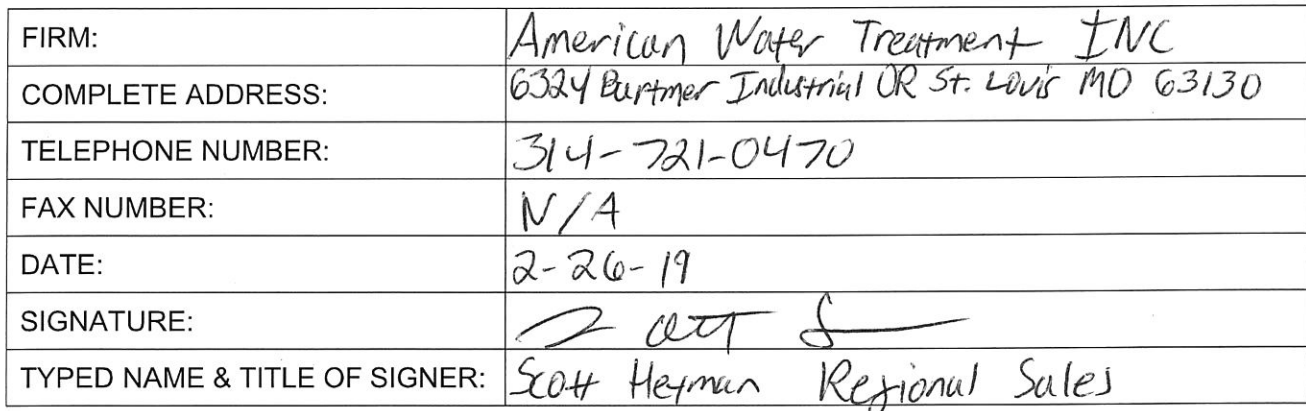 FIRM: American Water Treatment INC
COMPLETE ADDRESS: 6324 Bartmer Industrial DR St. Louis MO 63130
TELEPHONE NUMBER: 314-721-0470
FAX NUMBER: N/A
DATE: 2-26-19
SIGNATURE:
TYPED NAME & TITLE OF SIGNER: Scott Heyman Regional Sales